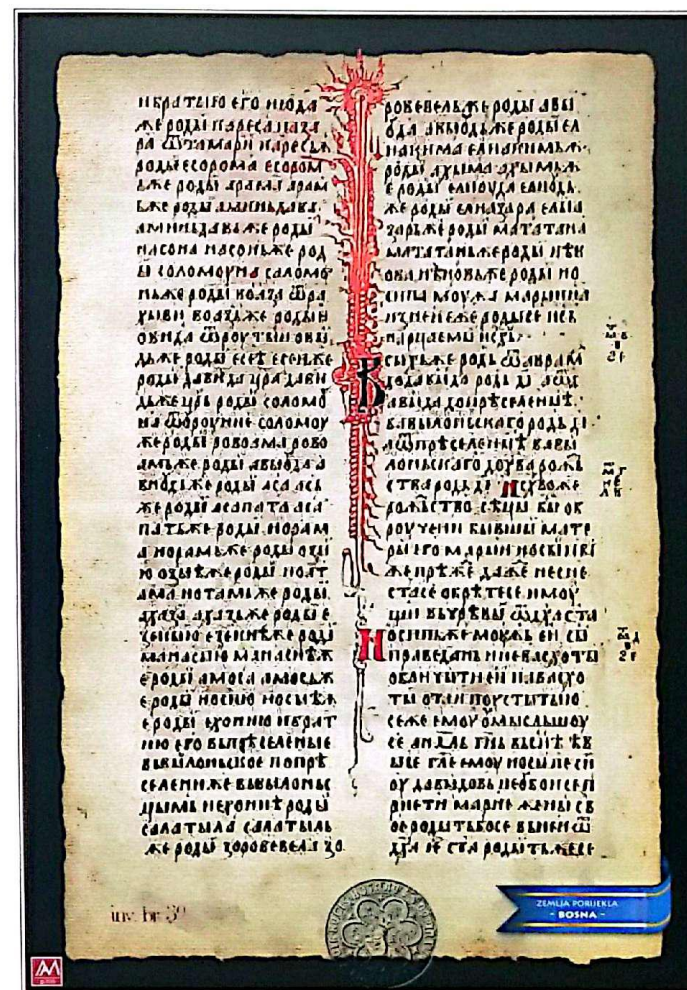 и братью его июда
же роди пареса и аза
ра ѿ тамари паресьж
роди есорома есором
ьже роди арама арам
ьже роди аминьдава
аминьдавьже роди
насона насоньже род
и соломоуна саломо
ньже роди воаза ѿ ра
хиви воазьже роди
овида ѿ роути ови
дьже роди есеѣ есеиже
роди давида цра дави
дьже црь роди соломо
на ѿ оурине соломоу
же роди ровоама рово
амьже роди авиюда а
виюдьже роди аса ась
же роди асапата аса
патьже роди иорам
а иорамьже роди ози
ю озиѣже роди иоат
ама иотамьже роди
ахаза ахазьже роди е
зекию езекиѣже роди
манасию манасиѣж
е роди амоса амосьж
е роди иосию иосиѣж
е роди ехонию и брат
ию его вь прѣселение
вавилоньское по прѣ
селениже вавилоньс
цѣмь иехониѣ роди
салатила салатиль
же роди зоровевела зо
ровевельже роди ави
юда авиюдьже роди ел
иакима елиакимьж
роди ахима ахимьж
е роди елиоуда елиодь
же роди елиазара елиа
зарьже роди матата
матата ньже роди иѣк
ова иѣковьже роди ио
сипа моужа мариина
из неиже родисе исъ
нарицаеми исхъ
сыхьже родь ѿ аврама
до давида родь ді а ѿ
давида до прѣселениѣ
вавилоньскаго родь ді
а ѿ прѣселениѣ вави
лоньскаго до хва рожь
ства родь ді исхвоже
рожьство сице бѣ об
роучени бывши мате
ри его марии иосипови
жепрѣже даже не сне
стасе обрѣтесе имоу
щи вь чрѣвѣ ѿ дха ста
Иосипьже моужь еи сы
праведань и не васхоты
обличыти еи и васхо
ты отаи поустытыю
сеже емоу ѡмысльшоу
се анђль гнь вь снѣ ѣв
исе гле емоу иосипе сн
оу давидовь не обоисе п
риети марие жены св
ое родытьбосе вь неи ѿ
дха е ста родить же се
inv. br. 39
ZEMLJA PORIJEKLA
- BOSNA -